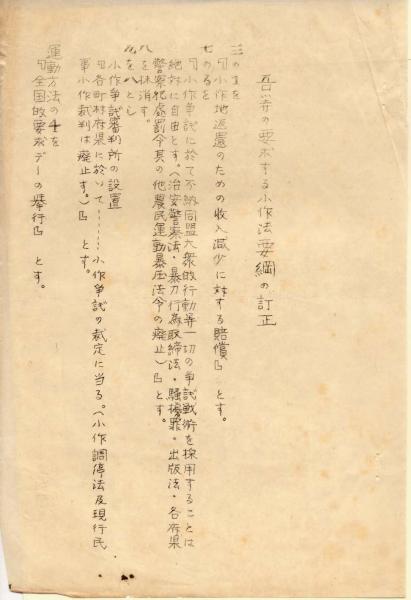 吾等の要求する小作法要綱の訂正
三の1を
『小作地返還のための収入減少に対する賠償』とす。
七のるを
『小作争議に於て不納同盟大衆的行動等一切の争議戦術を採用することは
絶対に自由とす。（治安警察法・暴力行為取締法・騒擾罪・出版法・各府県
警察犯処罰令其の他農民運動暴圧法令の廃止）』とす。
八を抹消す。
九を八とし
小作争議審判所の設置
『各町村府県に於いて……小作争議の裁定に当る。（小作調停法及現行民
事小作裁判は廃止す。）』とす。
運動方法の4を
『全国的要求デーの挙行』とす。